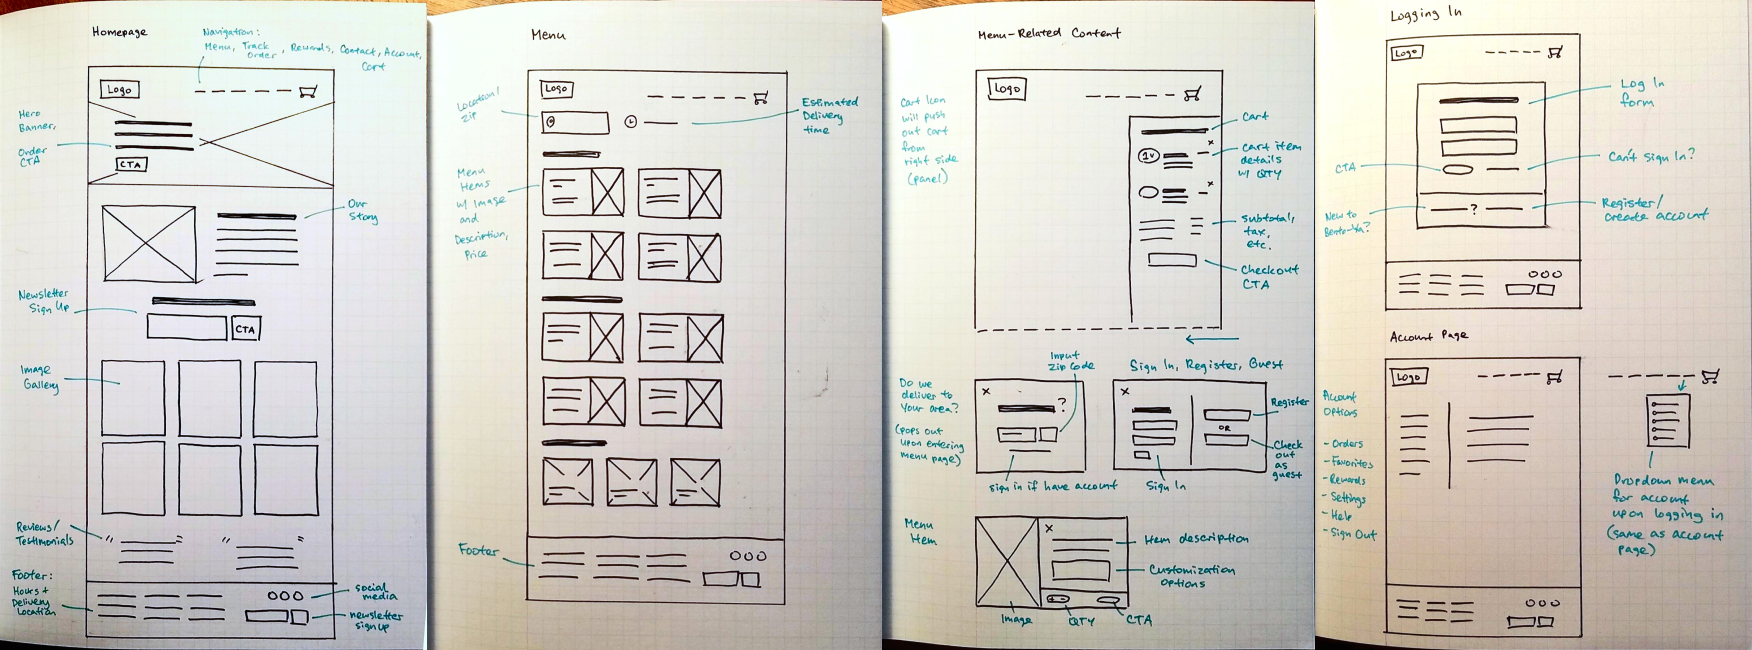 Homepage
Navigation:
Menu, Track Order, Rewards, Contact, Account,
Cart
Logo
Hero
Banner,
Order
CTA
CTA
Our
Story
Newsletter
Sign Up
CTA
Image
Gallery
Reviews/
Testimonials
" "
" "
Footer:
Hours +
Delivery
Location
social
media
newsletter
signup
Menu
Location/
Zip
Logo
Estimated
Delivery
time
Menu
Items
w/ Image
and
Description,
Price
Footer
Menu-Related Content
Cart Icon
will push
out cart
from
right side
(panel)
Logo
Cart
x
1v
cart item
details
w/ QTY
x
Subtotal,
tax,
etc.
Checkout
CTA
Do we
deliver to
your area?
(pops out
upon entering
menu page)
Input
Zip Code
x
?
sign in if have account
Sign In, Register, Guest
x
Register
OR
Check
out
as
guest
Sign In
Menu
Item
x
Item description
Customization
Options
+ -
Image
QTY
CTA
Logging In
Logo
Log In
form
CTA
Can't sign in?
New to
Bento-Ya?
?
Register/
create account
Account Page
Logo
Account
Options
- Orders
- Favorites
- Rewards
- Settings
- Help
- Sign Out
Dropdown menu
for account
upon logging in
(same as account
page)